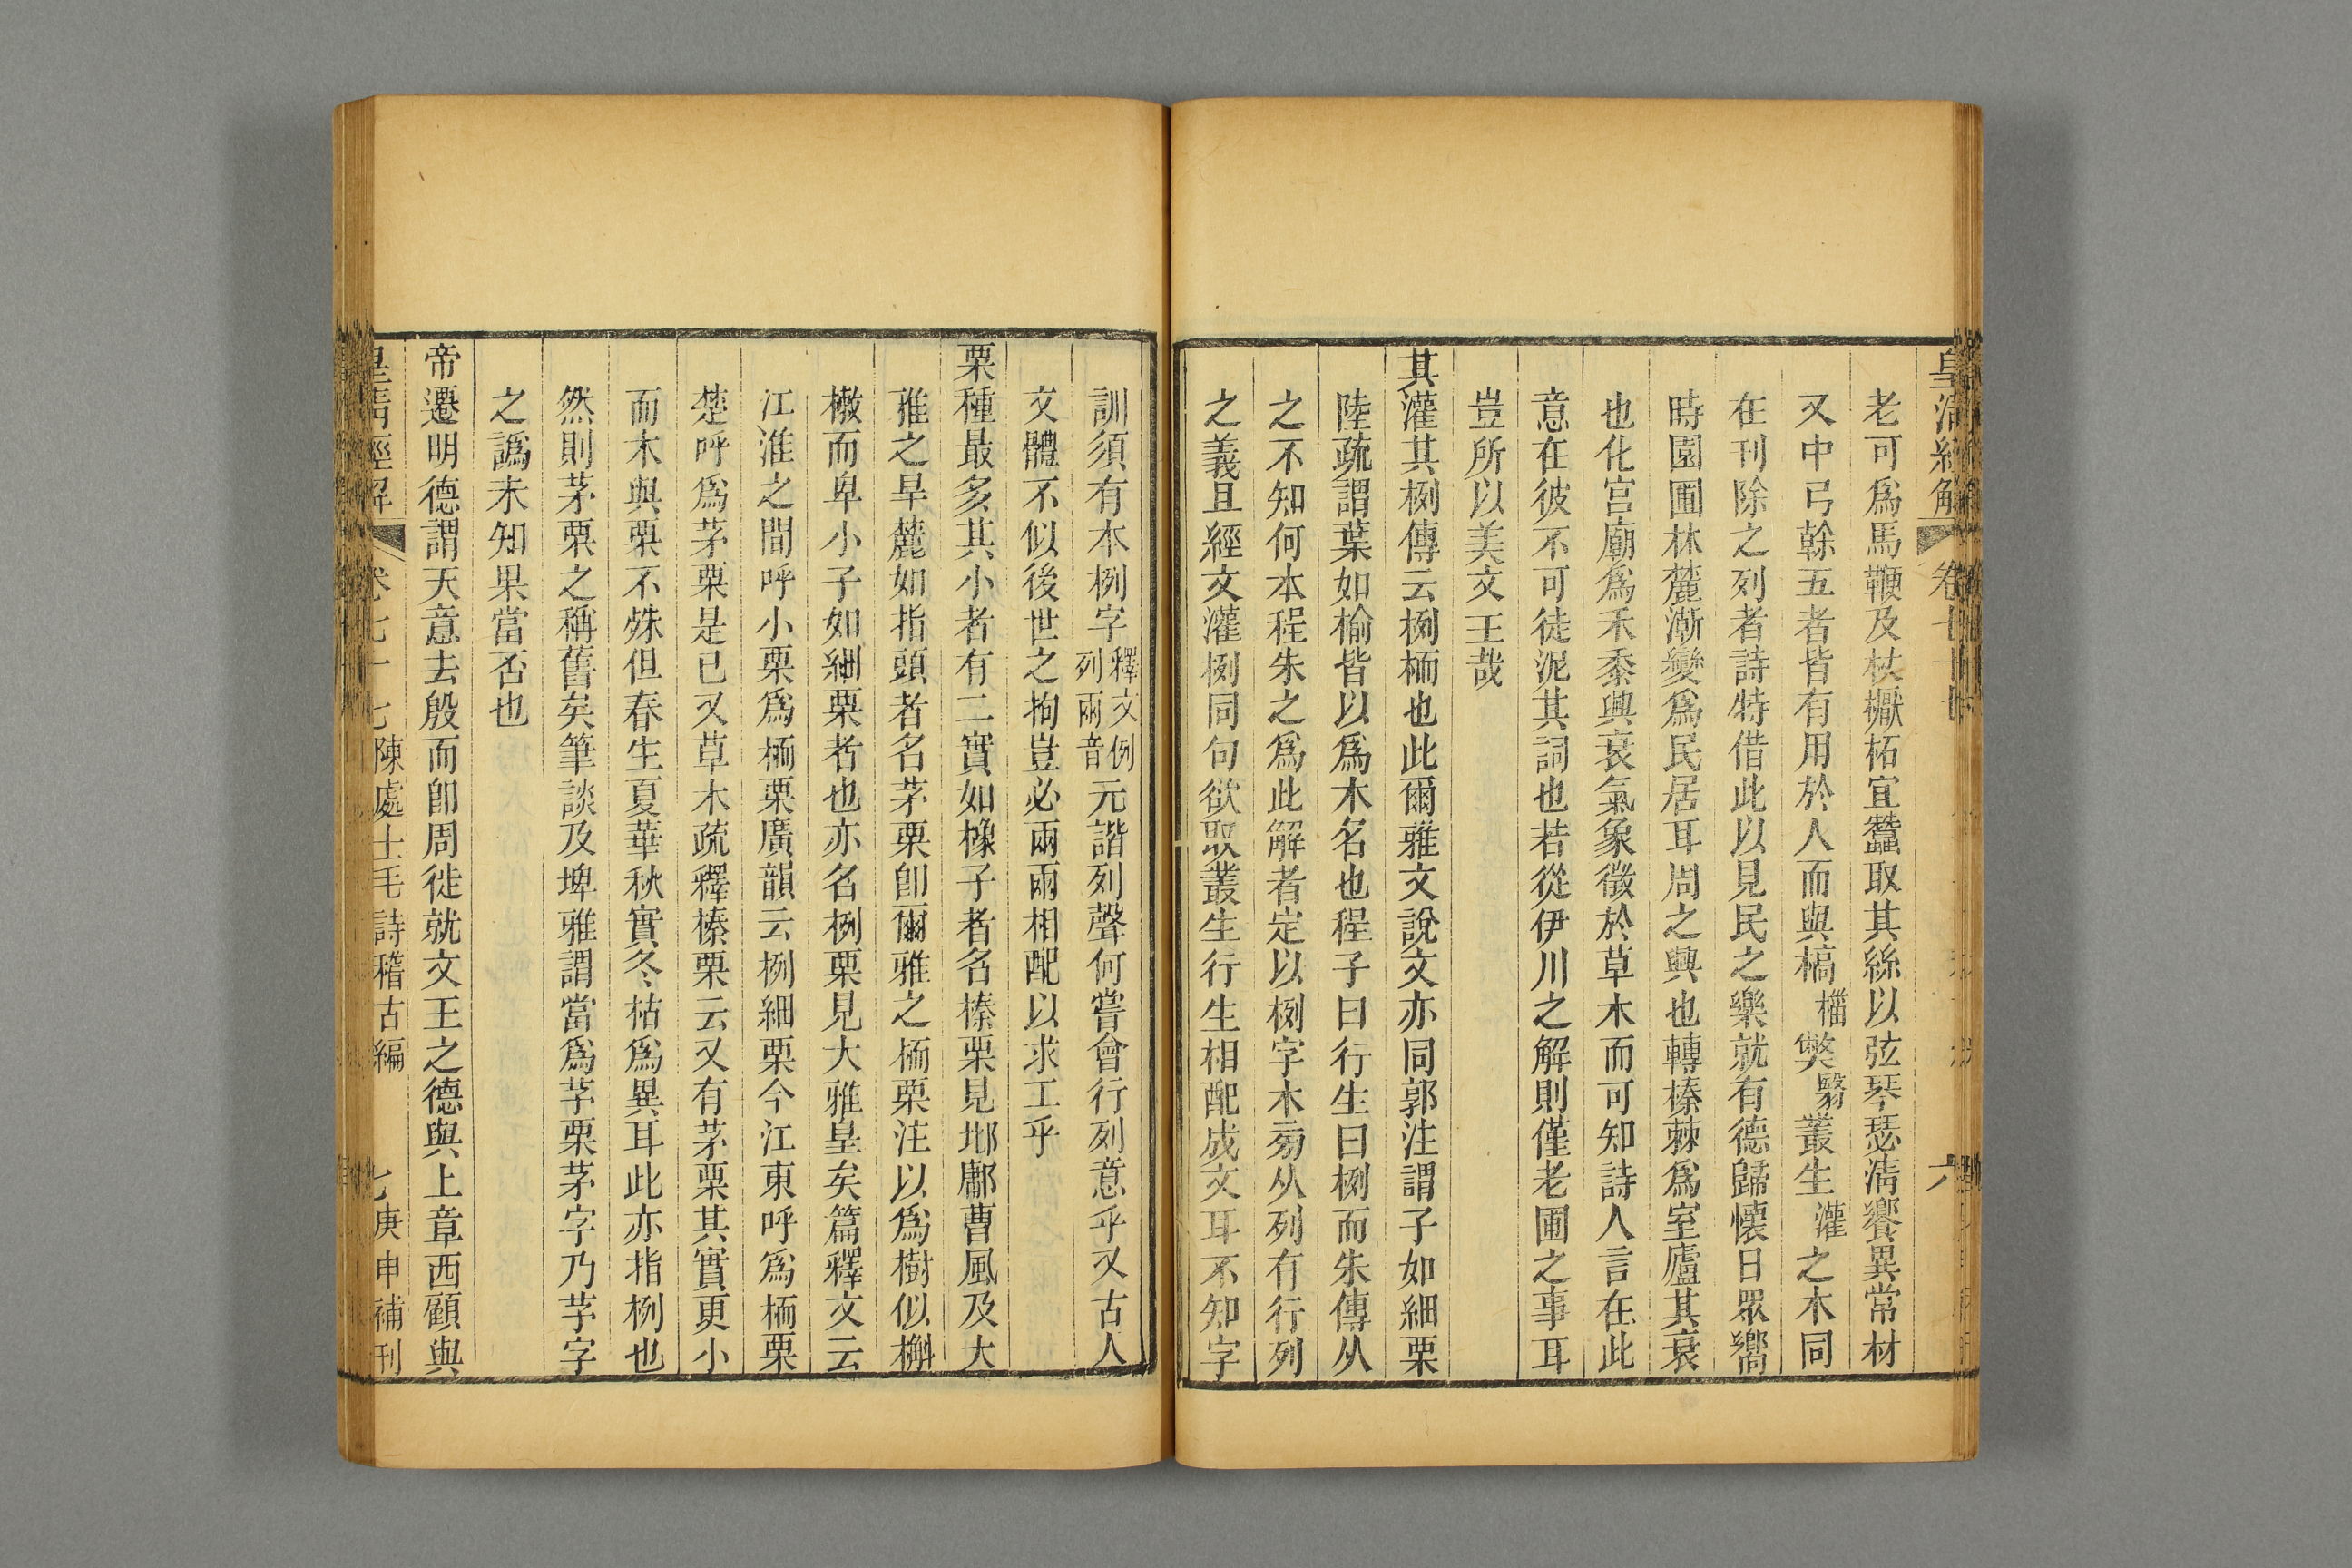 皇清經解 卷七十七 六
老可爲馬鞭及杖檿柘宜蠶取其絲以弦琴瑟淸饗異常材
又中弓榦五者皆有用於人而與椔檿翳叢生灌之木同
在刊除之列者詩特借此以見民之樂就有德歸懷日眾嚮
時園圃林麓漸變爲民居耳周之興也轉榛棘爲室廬其衰
也化宮廟爲禾黍興衰氣象徵於草木而可知詩人言在此
意在彼不可徒泥其詞也若從伊川之解則僅老圃之事耳
豈所以美文王哉
其灌其栵傳云栵栭也此爾雅文說文亦同郭注謂子如細栗
陸疏謂葉如榆皆以爲木名也程子曰行生曰栵而朱傳从
之不知何本程朱之爲此解者定以栵字木旁从列有行列
之義且經文灌栵同句欲取叢生行生相配成文耳不知字
訓須有本栵字釋文例列兩音元諧列聲何嘗會行列意乎又古人
文體不似後世之拘豈必兩兩相配以求工乎
栗種最多其小者有二實如橡子者名榛栗見邶鄘曹風及大
雅之旱麓如指頭者名茅栗卽爾雅之栭栗注以爲樹似槲
樕而卑小子如細栗者也亦名栵栗見大雅皇矣篇釋文云
江淮之間呼小栗爲栭栗廣韻云栵細栗今江東呼爲栭栗
楚呼爲茅栗是已又草木疏釋榛栗云又有茅栗其實更小
而木與栗不殊但春生夏華秋實冬枯爲異耳此亦指栵也
然則茅栗之稱舊矣筆談及埤雅謂當爲芧栗茅字乃芧字
之譌未知果當否也
帝遷明德謂天意去殷而卽周徙就文王之德與上章西顧與
皇淸經解 卷七十七 陳處士毛詩稽古編 七 庚申補刊